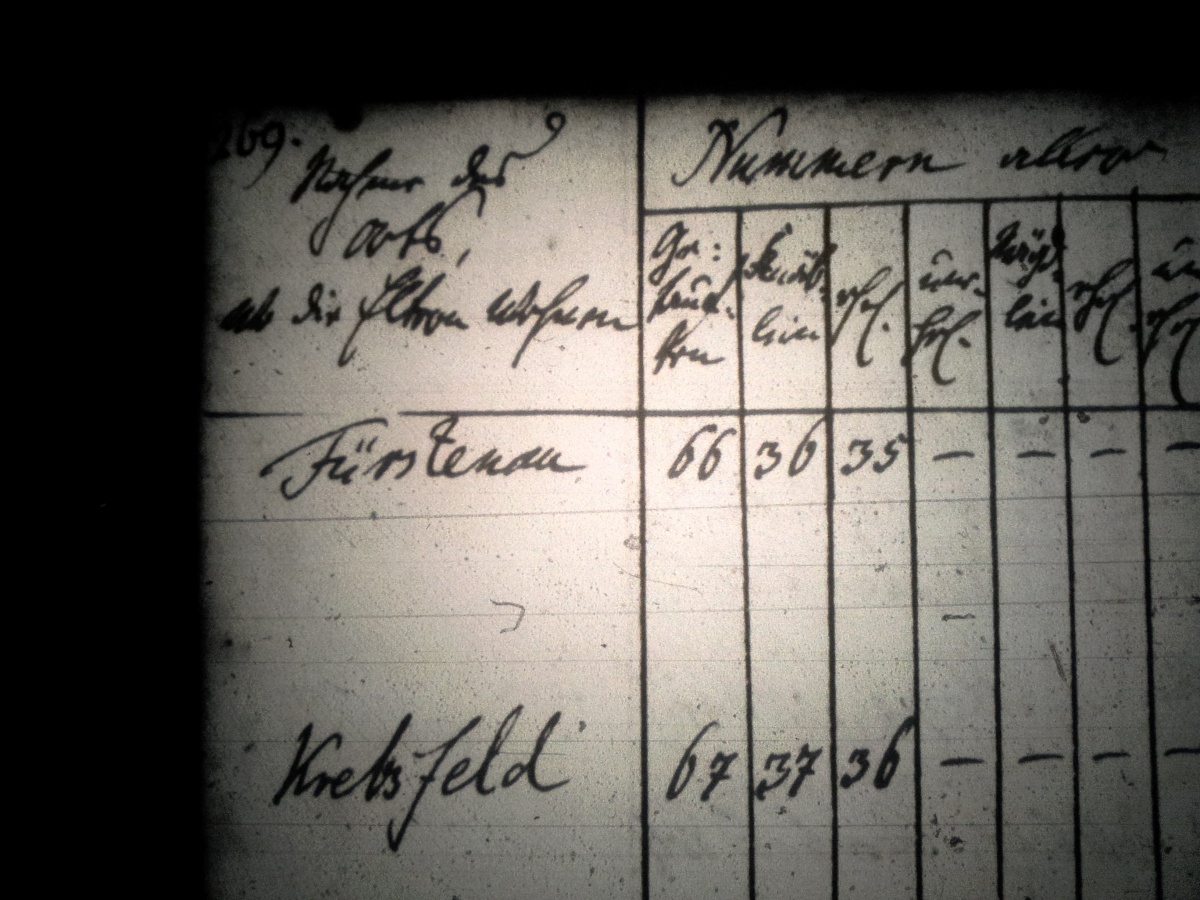 269.
Nahme des
Orts,
wo die Eltern wohnen
Nummern aller
Ge:
tauf-
ten
Knäb-
lein
ehel.
une-
hel.
Mägd-
lein
ehel.
un
ehel
Fürstenau 66 36 35 — — — —
Krebsfeld 67 37 36 — — — —